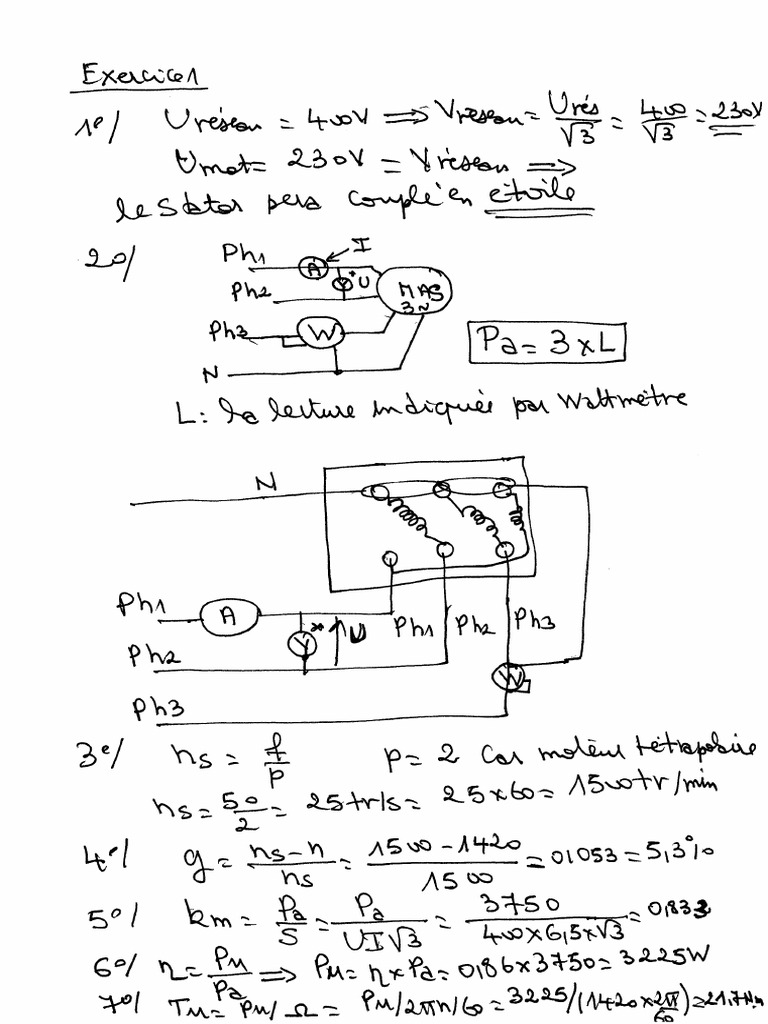 Exercice1
1°/ Uréseau = 400V ⟹ Vréseau = Urés/√3 = 400/√3 = 230V
Umot = 230V = Vréseau ⟹
le Stator sera couplé en étoile
2°/
Ph1 A I
Ph2 V U
MAS
3~
Ph3 W
N
Pa = 3 x L
L : la lecture indiquée par Wattmètre
N
Ph1 A
V U Ph1 Ph2 Ph3
Ph2
W
Ph3
3°/ ns = f/p p = 2 Car moteur tétrapolaire
ns = 50/2 = 25tr/s = 25x60 = 1500tr/min
4°/ g = (ns-n)/ns = (1500-1420)/1500 = 0,053 = 5,3%
5°/ km = Pa/S = Pa/(UI√3) = 3750/(400x6,5x√3) = 0,833
6°/ η = Pu/Pa ⟹ Pu = η x Pa = 0,86x3750 = 3225W
7°/ Tu = Pu/Ω = Pu/2πn/60 = 3225/(1420x2π/60) = 21.7Nm